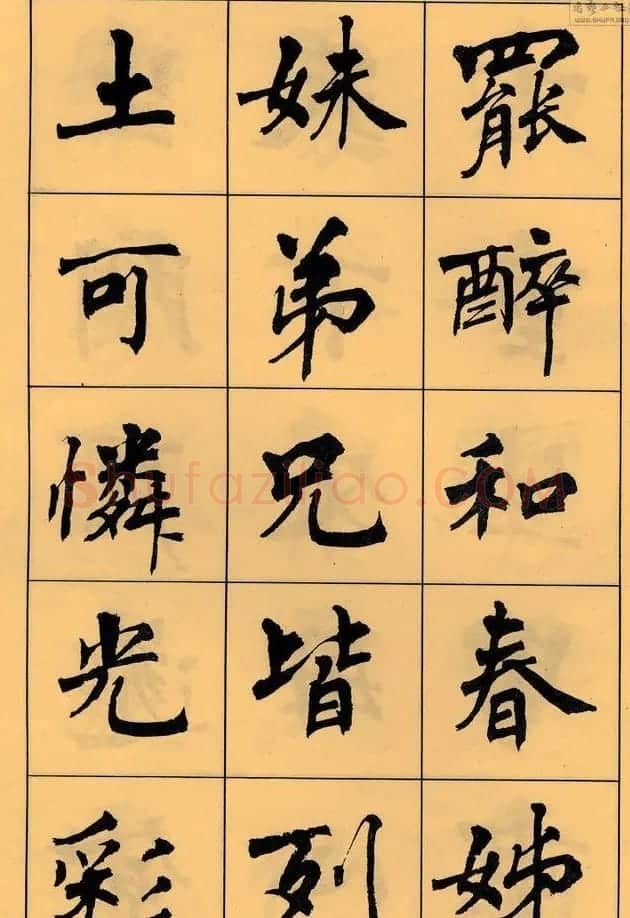 罷醉和春姊
妹弟兄皆列
土可憐光彩
Shufaziliao.COM